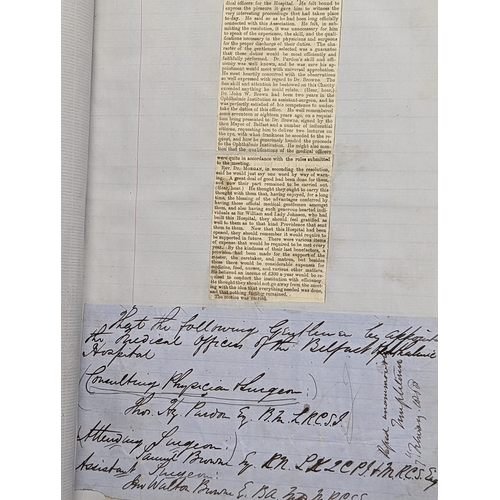 dical offices for the Hospital. He felt bound to
express the pleasure it gave him to witness the
very interesting proceedings that had taken place
to-day. He said so as he had been long officially
connected with this Association. He felt, in sub-
mitting the resolution, it was unnecessary for him
to speak of the experience, the skill, and the quali-
fications necessary in the physicians and surgeons
for the proper discharge of their duties. The cha-
racter of the gentlemen selected was a guarantee
that these duties would be most efficiently and
faithfully performed. Dr. Purdon's skill and effi-
ciency was well known, and he was sure his ap-
pointment would meet with universal approbation.
He most heartily concurred with the observations
so well expressed with regard to Dr. Browne.
The skill and attention he bestowed on this Charity
exceeded anything he could relate. (Hear, hear.)
Dr. John W. Brown had been two years in the
Ophthalmic Institution as assistant-surgeon, and he
was perfectly satisfied of his competence to under-
take the duties of this office. He well remembered
some seventeen or eighteen years ago, on a requi-
sition being presented to Dr. Browne, signed by the
then Mayor of Belfast and a number of influential
citizens, requesting him to deliver two lectures on
the eye, with what frankness he acceded to the re-
quest, and how he generously handed the proceeds
to the Ophthalmic Institution. He might also men-
tion that the qualifications of the medical officers
were quite in accordance with the rules submitted
to the meeting.
Rev. Dr. MORGAN, in seconding the resolution,
said he would just say one word by way of warn-
ing. A great deal of good had been done for them,
and now their part remained to be carried out.
(Hear, hear.) He thought they ought to carry this
thought with them that, having enjoyed, for a long
time, the blessing of the advantages conferred by
having these official medical gentlemen amongst
them, and also having such generous-hearted indi-
viduals as Sir William and Lady Johnson, who had
built this Hospital, they should feel gratified as
well to them as to that kind Providence that sent
them to them. Now that this Hospital had been
opened, they should remember it would require to
be supported in future. There were various items
of expense that would be required to be met every
year. By the kindness of their last benefactors, a
provision had been made for the support of
master, the caretaker, and matron, but besides
these there would be considerable expenses for
medicine, food, nurses, and various other matters.
He believed an income of £300 a year would be re-
quired to conduct the institution with efficiency.
He thought they should not go away from the meet-
ing with the idea that everything needed was done,
and that nothing further remained.
The motion was carried.
That the following Gentlemen be appointed
the Medical Officers of the Belfast Ophthalmic
Hospital
(Consulting Physician & Surgeon:)
Thos. Hy Purdon Esq B.M. L.R.C.S.I.
(Attending Surgeon:)
Samuel Browne Esq R.N. L.K.Q.C.P.I & M.R.C.S. Eng
Assistant Surgeon:
Jno Walton Browne Esq B.A. M.D. M.R.C.S.